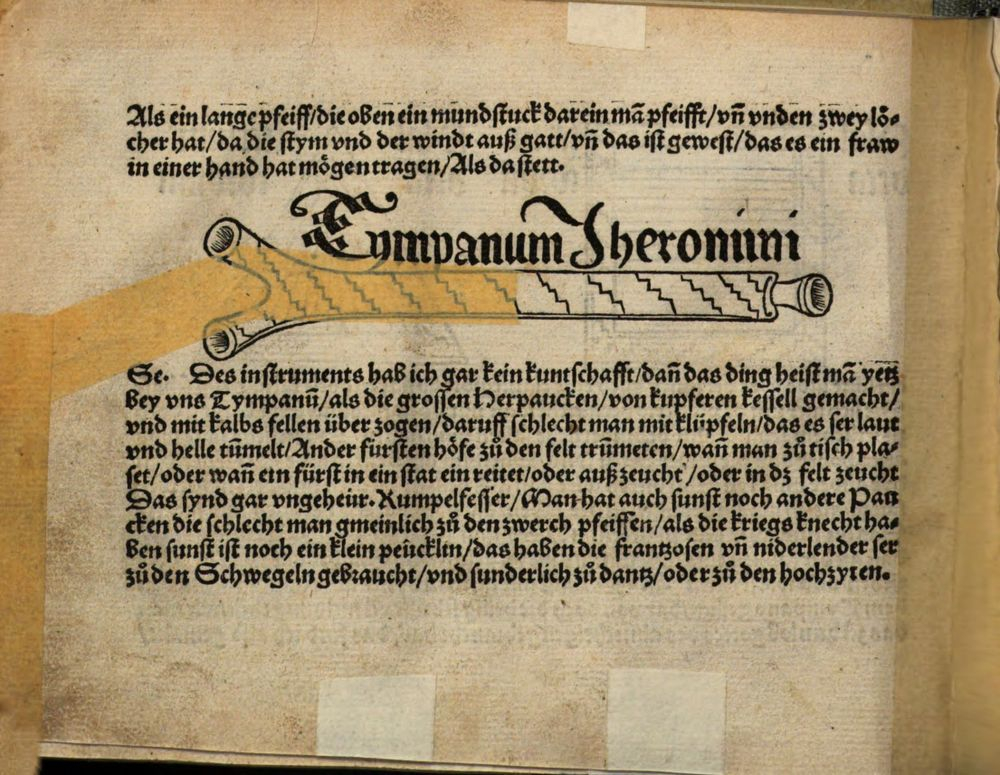 Als ein lange pfeiff/die oben ein mundstuck darein mā pfeifft/vñ vnden zwey lö⸗
cher hat/da die stym vnd der windt auß gatt/vñ das ist gewest/das es ein fraw
in einer hand hat mögen tragen/Als da stett.
Tympanum Jheronimi
Se. Des instruments hab ich gar kein kuntschafft/dañ das ding heist mā yetz
bey vns Tympanū/als die grossen Herpaucken/von kupferen kessell gemacht/
vnd mit kalbs fellen über zogen/daruff schlecht man mit klüpfeln/das es ser laut
vnd helle tūmelt/Ander fürsten höfe zů den felt trūmeten/wañ man zů tisch pla⸗
set/oder wañ ein fürst in ein stat ein reitet/oder auß zeucht/oder in dz felt zeucht
Das synd gar vngeheür. Rumpelfesser/Man hat auch sunst noch andere Pau
cken die schlecht man gmeinlich zů den zwerch pfeiffen/als die kriegs knecht ha⸗
ben sunst ist noch ein klein peücklin/das haben die frantzosen vñ niderlender ser
zů den Schwegeln gebraucht/vnd sunderlich zů dantz/oder zů den hochzyten.